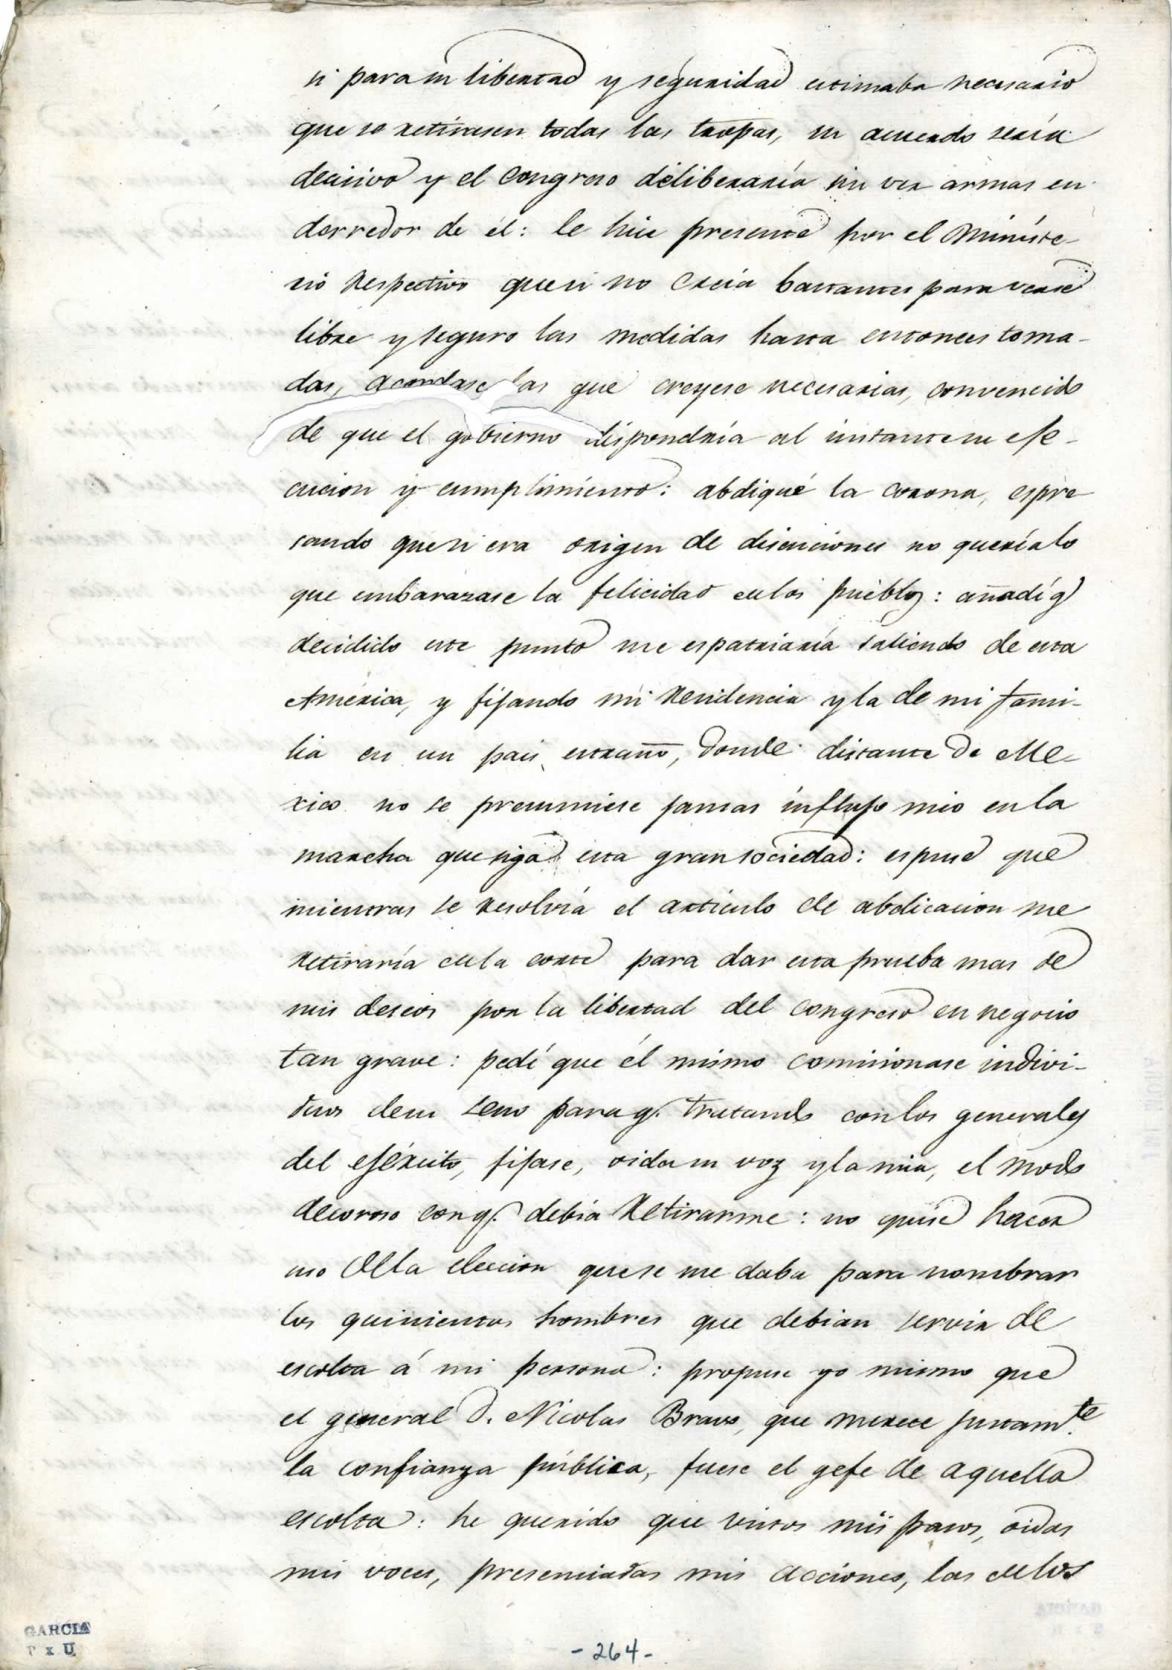 si para su libertad y seguridad estimaba necesario
que se retirasen todas las tropas, su acuerdo sería
decisivo y el congreso deliberaría sin ver armas en
derredor de él: le hice presente por el Ministe-
rio respectivo que si no creía bastantes para verse
libre y seguro las medidas hasta entonces toma-
das, acordase las que creyese necesarias, convencido
de que el gobierno dispondría al instante su eje-
cucion y cumplimiento: abdiqué la corona, espre
sando que si era origen de disenciones no quería lo
que embarazase la felicidad en los pueblos: añadí q
decidido este punto me espatriaría saliendo de esta
América, y fijando mi residencia y la de mi fami-
lia en un pais estraño, donde distante de Me-
xico no se presumiese jamas influjo mio en la
marcha que siga esta gran sociedad: espuse que
mientras se resolvía el artículo de abdicacion me
retiraría de la corte para dar esta prueba mas de
mis deseos por la libertad del congreso en negocio
tan grave: pedí que él mismo comisionase indivi-
duos de su seno para q. tratando con los generales
del ejército, fijase, oida su voz y la mia, el modo
decoroso con q. debia retirarme: no quise hacer
uso de la eleccion que se me daba para nombrar
los quinientos hombres que debian servir de
escolta á mi persona: propuse yo mismo que
el general D. Nicolas Bravo, que merece justam.te
la confianza pública, fuese el gefe de aquella
escolta: he querido que vistos mis pasos, oidas
mis voces, presenciadas mis acciones, las de los
GARCIA
- 264 -